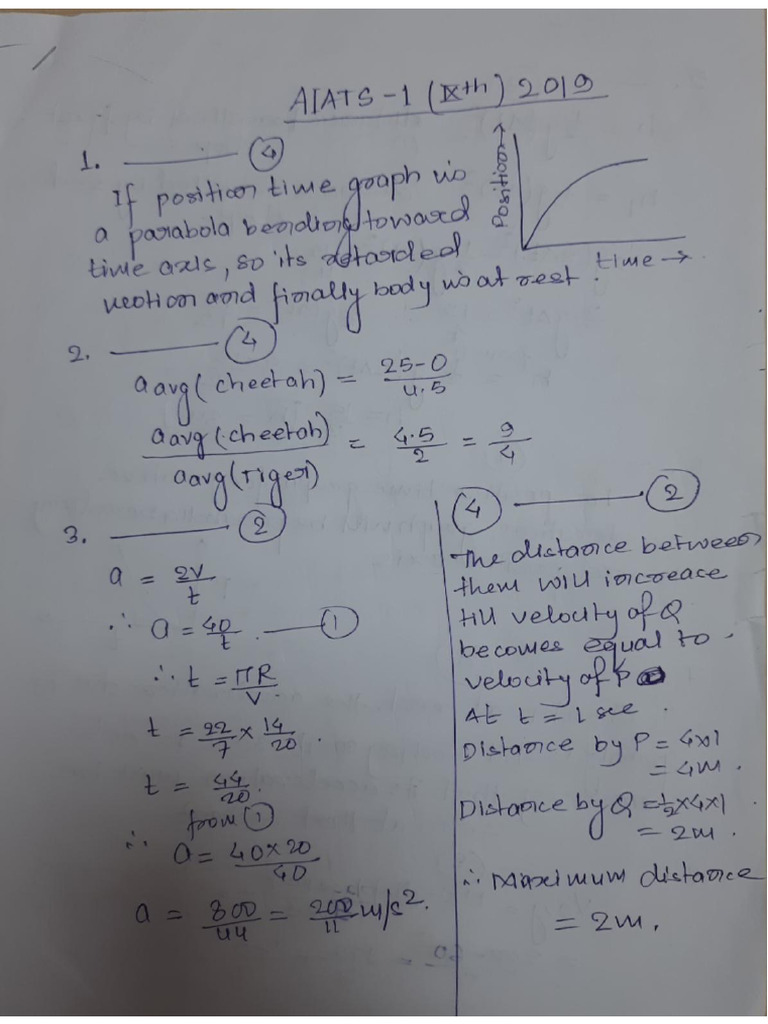 AIATS-1 (IXth) 2019
1. ——— (4)
If position time graph is
a parabola bending toward
time axis, so its retarded
motion and finally body is at rest.
Position →
time →
2. ——— (4)
a avg (cheetah) = 25-0 / 4.5
a avg (cheetah) / a avg (Tiger) = 4.5 / 2 = 9 / 4
3. ——— (2)
a = 2V / t
∴ a = 40 / t. — (1)
∴ t = πR / V
t = 22 / 7 × 14 / 20.
t = 44 / 20.
from (1)
∴ a = 40 × 20 / 40
a = 800 / 44 = 200 / 11 m/s².
(4) ——— (2)
The distance between
them will increace
till velocity of Q
becomes equal to
velocity of P
At t = 1 sec.
Distance by P = 4×1
= 4m.
Distance by Q = 1/2 × 4 × 1
= 2m.
∴ Maximum distance
= 2m.